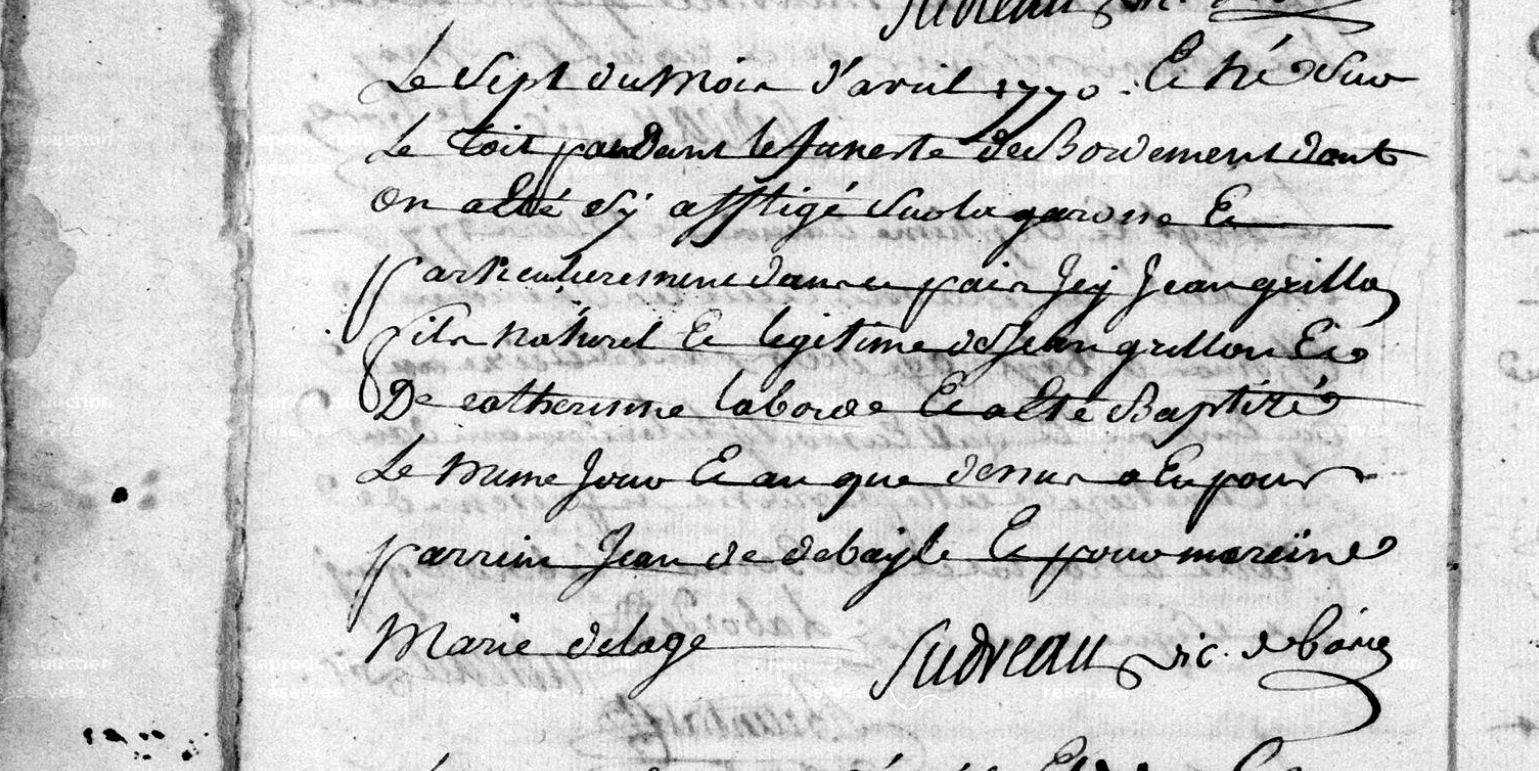 Sudreau vic.
Le Sept du Mois d'avril 1770. Et né Sur
Le toit pandant le funeste deBordement dont
on a Eté Sy affligé Sur la garonne Et
particulierement dans ce païs Jcy Jean grillon
fils naturel Et legitime de Jean grillon Et
De catherinne laborde Et a Eté Baptizé
Le meme Jour Et an que dessus a Eu pour
parrin Jean de debayle Et pour mareine
Marie delage
Sudreau vic. de